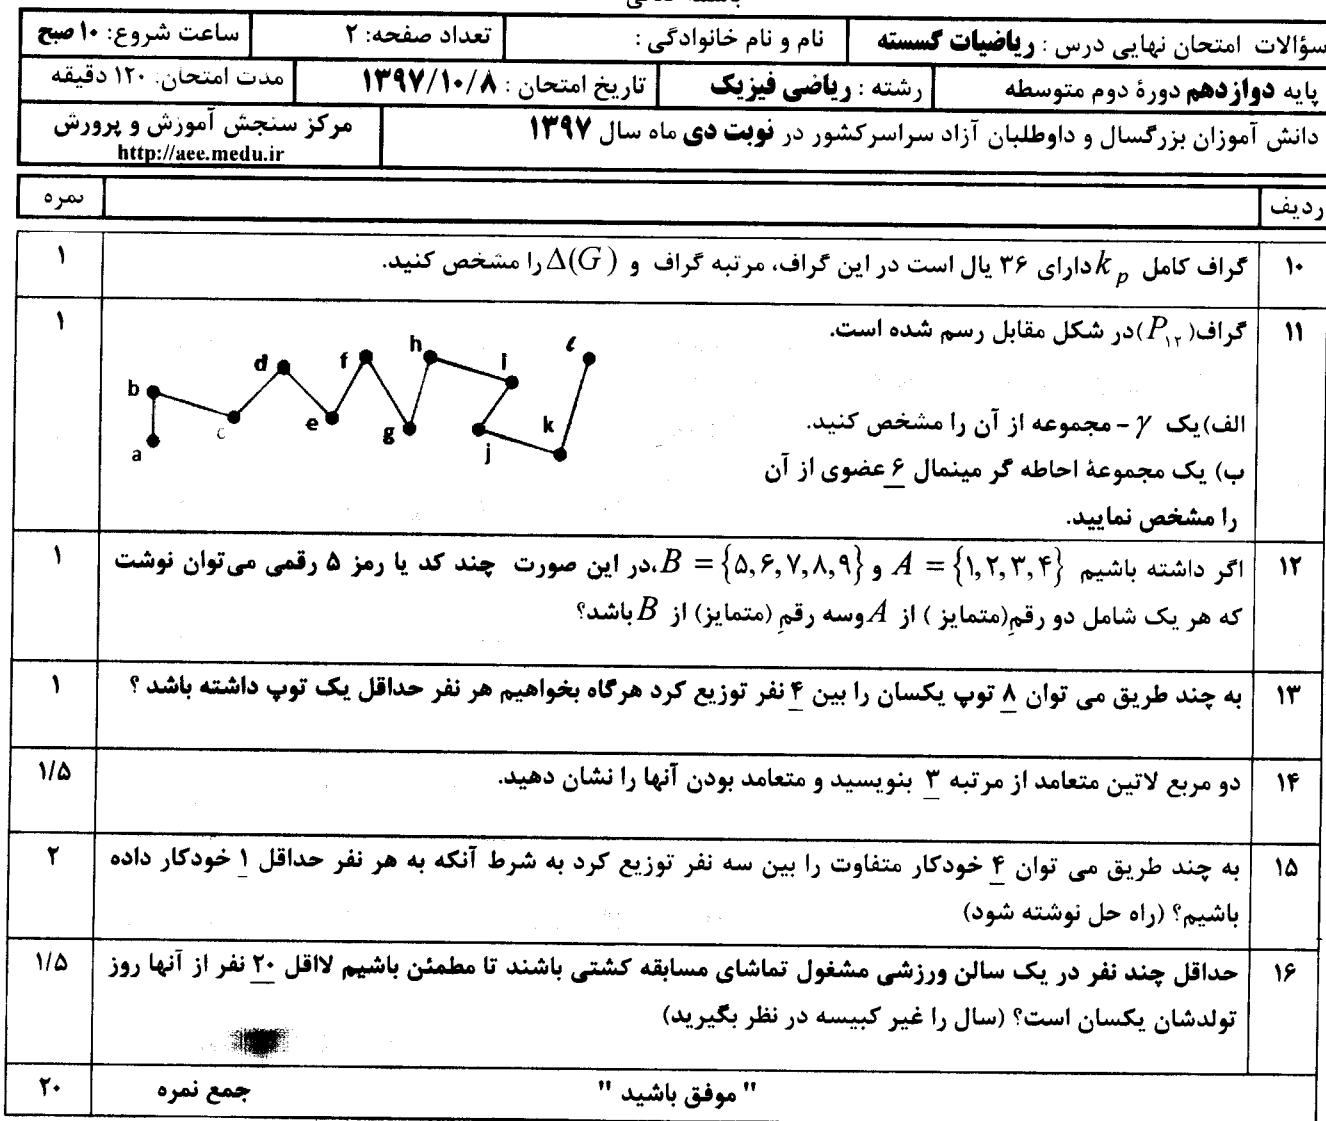 سؤالات امتحان نهایی درس : ریاضیات گسسته نام و نام خانوادگی : تعداد صفحه: ۲ ساعت شروع: ۱۰ صبح
پایه دوازدهم دورهٔ دوم متوسطه رشته : ریاضی فیزیک تاریخ امتحان : ۱۳۹۷/۱۰/۸ مدت امتحان: ۱۲۰ دقیقه
دانش آموزان بزرگسال و داوطلبان آزاد سراسرکشور در نوبت دی ماه سال ۱۳۹۷ مرکز سنجش آموزش و پرورش
http://aee.medu.ir
ردیف نمره
۱۰ گراف کامل k_p دارای ۳۶ یال است در این گراف، مرتبه گراف و Δ(G) را مشخص کنید. ۱
۱۱ گراف(P_۱۲) در شکل مقابل رسم شده است. ۱
a b c d e f g h i j k ℓ
الف)یک γ - مجموعه از آن را مشخص کنید.
ب) یک مجموعهٔ احاطه گر مینمال ۶ عضوی از آن
را مشخص نمایید.
۱۲ اگر داشته باشیم A = {۱,۲,۳,۴} و B = {۵,۶,۷,۸,۹}،در این صورت چند کد یا رمز ۵ رقمی می‌توان نوشت ۱
که هر یک شامل دو رقمِ(متمایز ) از A وسه رقمِ (متمایز) از B باشد؟
۱۳ به چند طریق می توان ۸ توپ یکسان را بین ۴ نفر توزیع کرد هرگاه بخواهیم هر نفر حداقل یک توپ داشته باشد ؟ ۱
۱۴ دو مربع لاتین متعامد از مرتبه ۳ بنویسید و متعامد بودن آنها را نشان دهید. ۱/۵
۱۵ به چند طریق می توان ۴ خودکار متفاوت را بین سه نفر توزیع کرد به شرط آنکه به هر نفر حداقل ۱ خودکار داده ۲
باشیم؟ (راه حل نوشته شود)
۱۶ حداقل چند نفر در یک سالن ورزشی مشغول تماشای مسابقه کشتی باشند تا مطمئن باشیم لااقل ۲۰ نفر از آنها روز ۱/۵
تولدشان یکسان است؟ (سال را غیر کبیسه در نظر بگیرید)
" موفق باشید " جمع نمره ۲۰